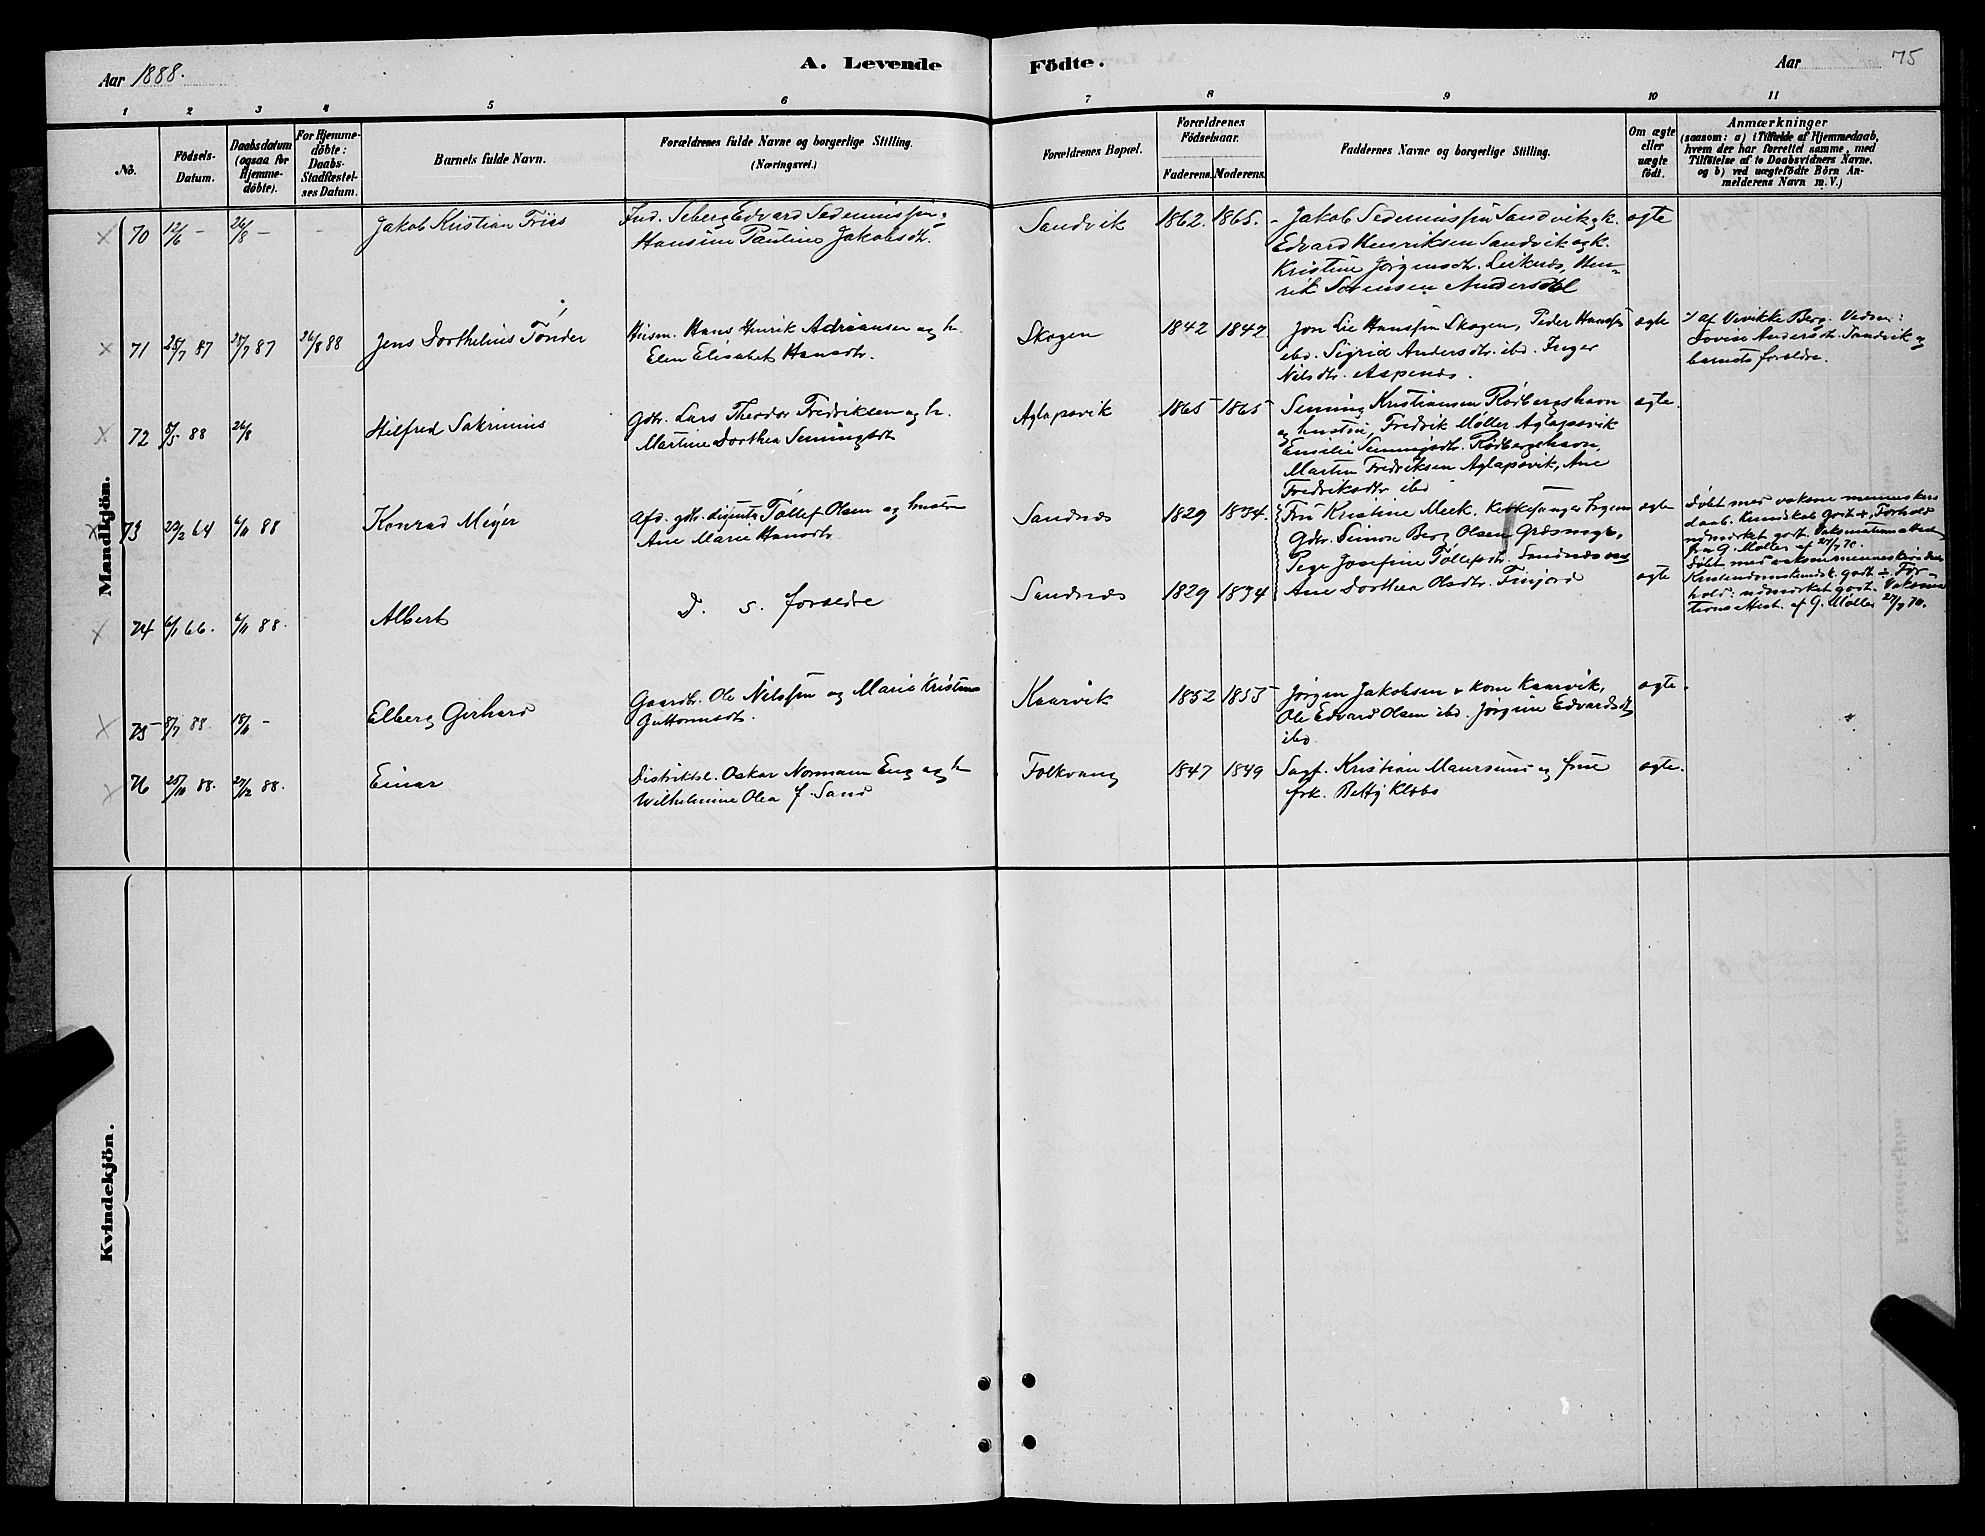 Aar 1888.
A. Levende
Födte.
Aar
75
1 2 3 4 5 6 7 8 9 10 11
No.
Födsels-
Datum.
Daabsdatum
(ogsaa for
Hjemme-
döbte).
For Hjemme-
döbte:
Daabs-
Stadfæstel-
ses Datum.
Barnets fulde Navn.
Forældrenes fulde Navne og borgerlige Stilling.
(Næringsvei.)
Forældrenes Bopæl.
Forældrenes
Födselsaar.
Faderens. Moderens.
Faddernes Navne og borgerlige Stilling.
Om ægte
eller
uægte
födt.
Anmærkninger
(saasom: a) i Tilfælde af Hjemmedaab,
hvem der har forrettet samme, med
Tilföielse af to Daabsvidners Navne,
og b) ved uægtefödte Börn An-
melderens Navn m. V.)
Mandkjön.
70 12/6 - 26/8 - -
Jakob Kristian Friis
Ind. Seberg Edvard Sedeniussen
Hansine Pauline Jakobsdtr.
Sandvik
1862. 1865.
Jakob Sedeniussen Sandvik og k.
Edvard Henriksen Sandvik og k.
Kristine Jørgensdtr. Leiknes, Hen-
rik Sørensen Andersdal
ægte
71 25/7 87 25/7 87 26/8 88
Jens Dorthelius Tønder
Husm. Hans Henrik Adriansen og h.
Elen Elisabet Hansdtr.
Skogen
1842 1842
Jon Lie Hanssen Skogen, Peder Hanssen
ibd. Sigrid Andersdtr. ibd. Inger
Nilsdtr. Aspenes.
ægte
af Vivikke Berg. Vidner:
Lovise Andersdtr. Sandvik og
barnets forældre.
72 5/5 88 26/8
Hilfred Sakrinius
Gdbr. Lars Theodor Fredriksen og h.
Martine Dorthea Senningsdtr
Aglapsvik
1865 1865
Senning Kristiansen Rødbergshavn
og hustru, Fredrik Møller Aglapsvik
Emilie Senningsdtr. Rødbergshavn,
Martin Fredriksen Aglapsvik, Ane
Fredriksdtr ibd
ægte.
73 23/2 64 6/11 88
Konrad Meyer
Afd. gdbr. dissenter Tollef Olsen og hustru
Ane Marie Hansdtr.
Sandnes
1829 1834.
Fru Kristine Meek. Kirkesanger Ingem
Gdbr. Simon Berg Olsen Græsmyr,
Pige Josefine Tollefsdtr. Sandnes og
ægte
Døbt med voksne menneskers
daab. Kundskab godt +, Forhold
udmærket godt. Vaksinationsattest
fra G. Møller af 27/7 70.
74 6/1 66. 6/11 88.
Albert
D. s. forældre
Sandnes
1829 1834
Ane Dorthea Olsdtr. Finjord
ægte
Døbt med voksne menneskers daab
Kristendomskundsk. godt ÷. For-
hold: udmærket godt. Vaksina-
tionsattest. af G. Møller 27/7 70.
75 8/7 88. 18/11 -
Elberg Gerhard
Gaardbr. Ole Nilssen og Marie Kristine
Guttormsdtr.
Kaarvik
1852 1853
Jørgen Jakobsen & kone Kaarvik,
Ole Edvard Olsen ibd. Jørgine Edvardsdtr
ibd
ægte.
76 25/10 88. 27/12 88.
Einar
Distriktsl. Oskar Normann Eng og h
Wilhelmine Olea f. Sand
Folkvang
1847 1849
Sagf. Kristian Maursund og frue
frk. Betty Klæbo
ægte.
Kvindekjön.